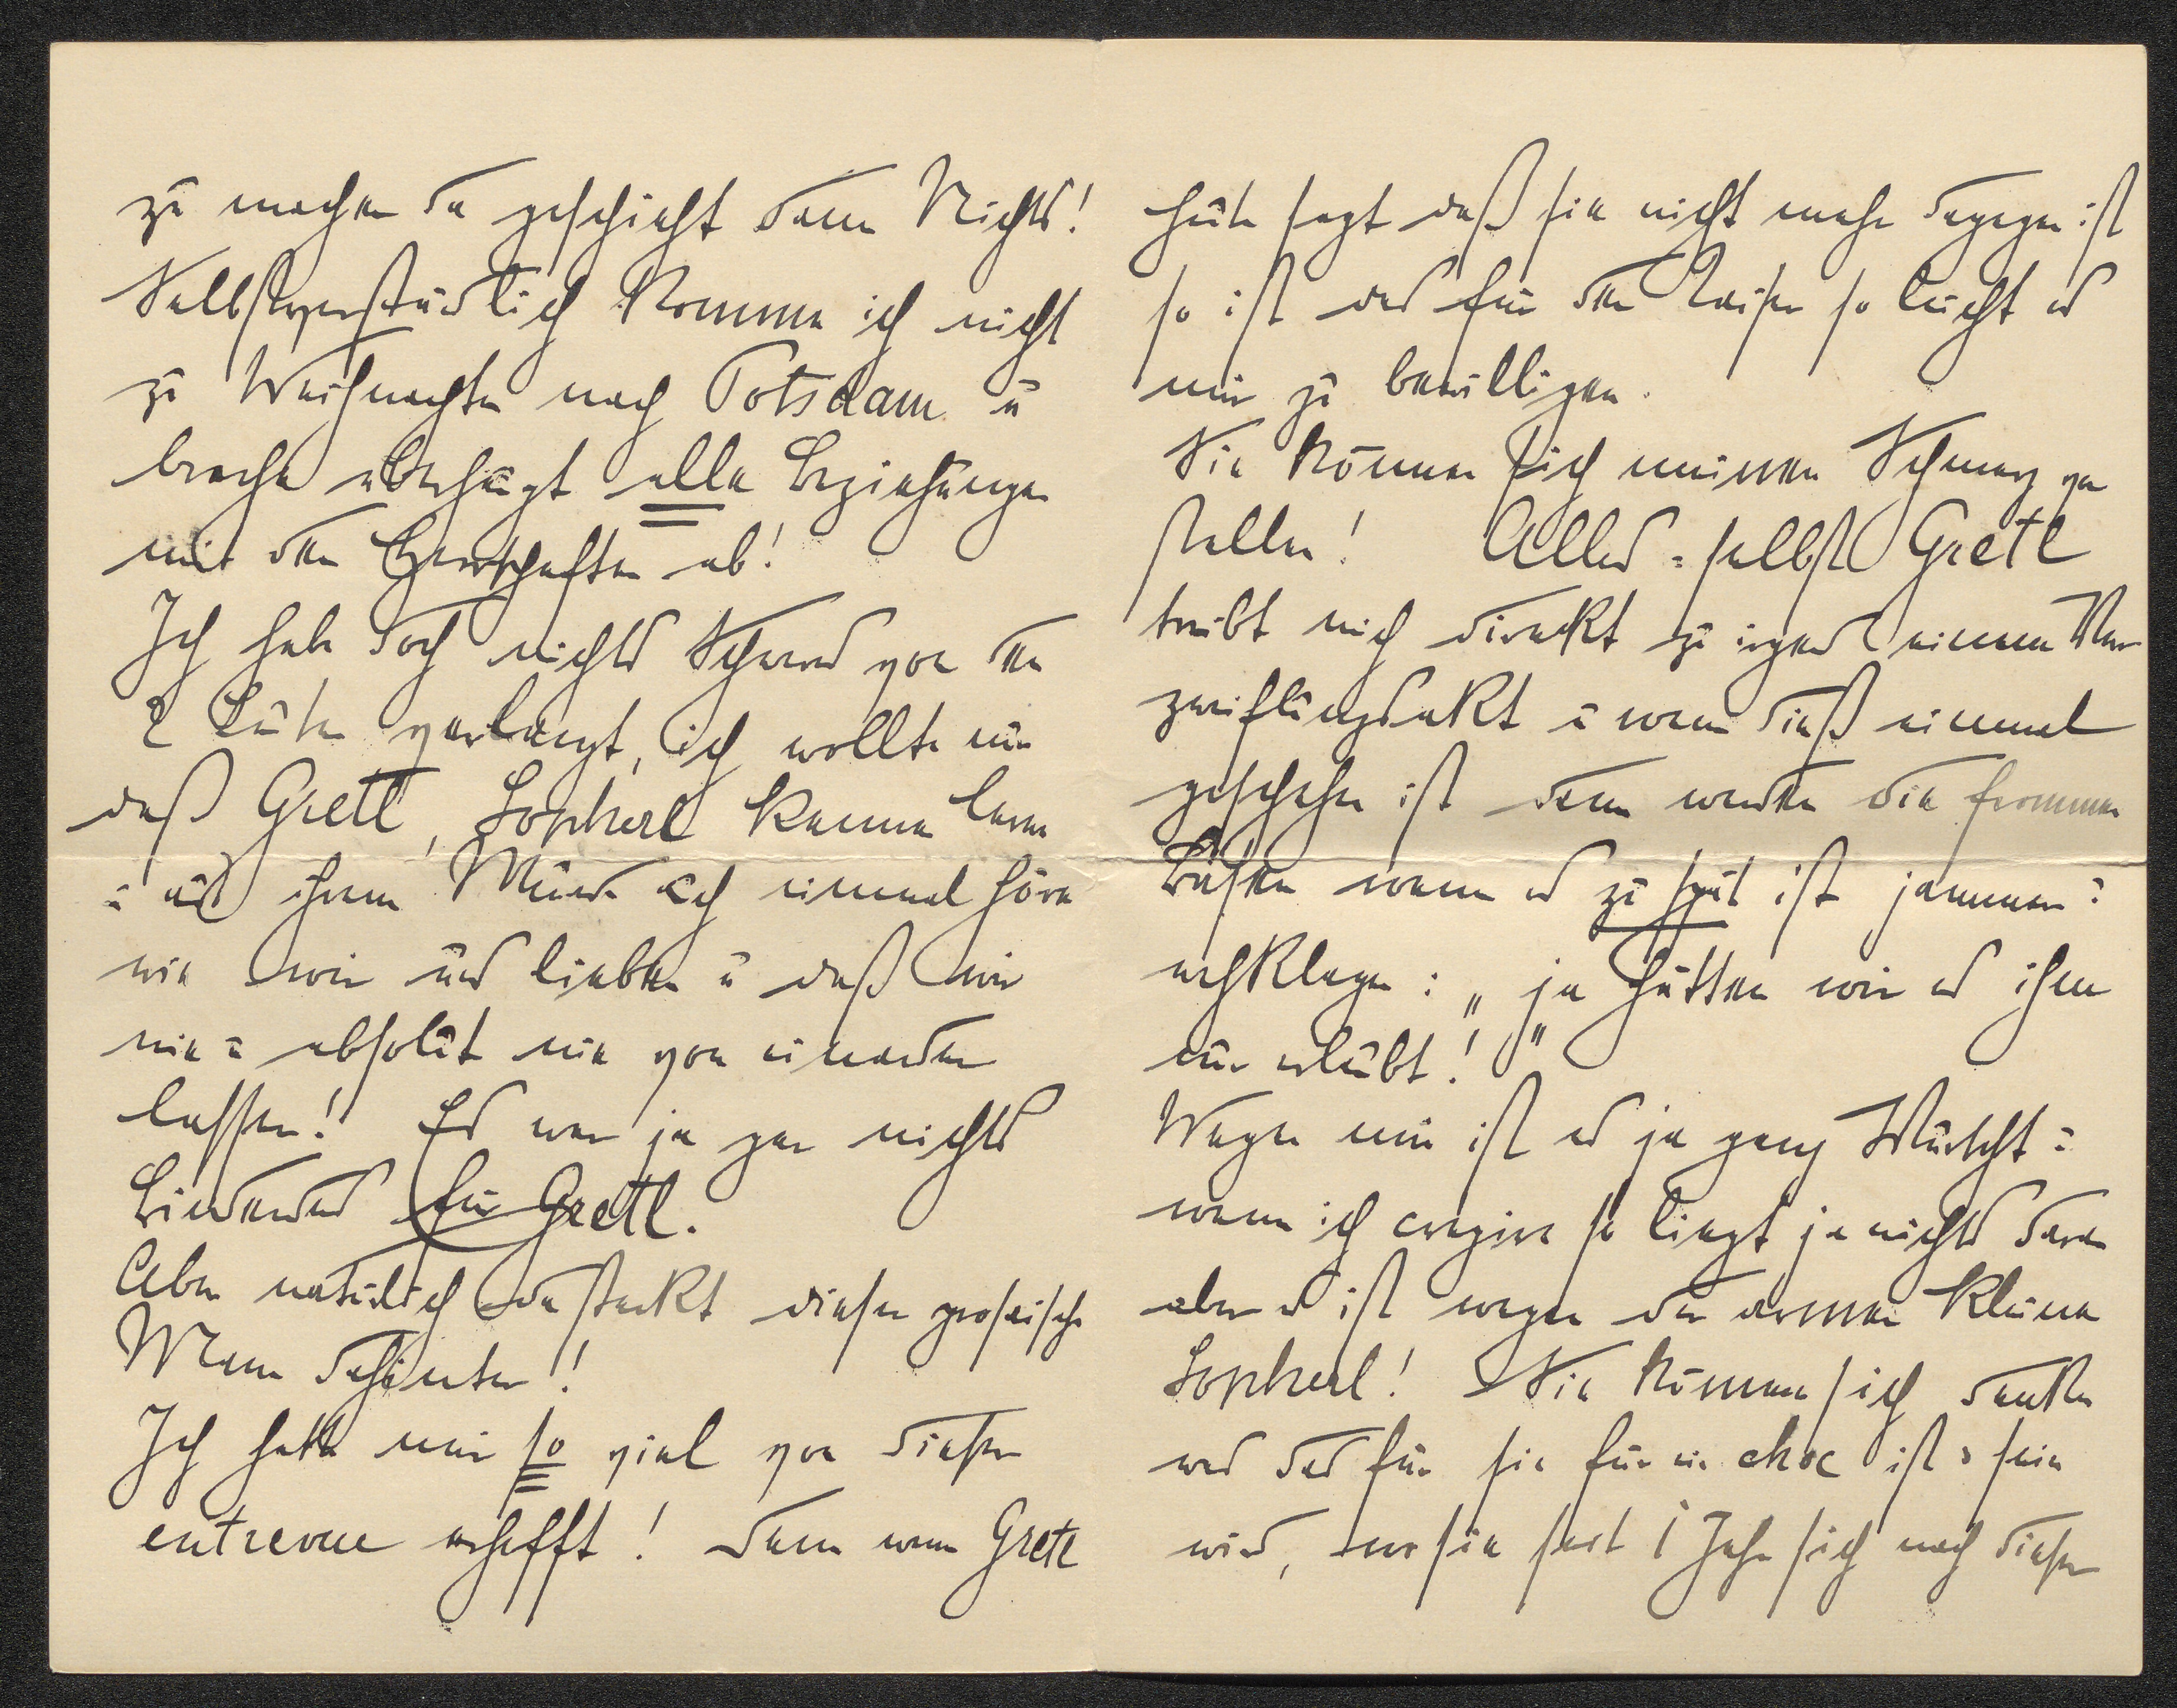 zu machen da geschieht dann Nichts!
Selbstverständlich komme ich nicht
zu Weihnachten nach Potsdam u
breche überhaupt alle Beziehungen
mit den Herrschaften ab!
Ich habe doch nichts Schweres von den
2 Leuten verlangt, ich wollte nur
daß Gretl, Sopherl kennen lerne
u aus ihrem Munde auch einmal höre
wie wir uns lieben u daß wir
nie u absolut nie von einander
lassen! Es war ja gar nichts
Bindendes für Gretl.
Aber natürlich da steckt dieser prosaische
Mann dahinter!
Ich hatte mir so viel von dieser
entrevue erhofft! denn wenn Gretl
heute sagt daß sie nicht mehr dagegen ist
so ist es für den Kaiser so leicht es
mir zu bewilligen.
Sie können sich meinen Schmerz vor
stellen! Alles - selbst Gretl
treibt mich direkt zu irgend einem Ver
zweiflungsakt u wenn dieß einmal
geschehen ist dann werden die frommen
Basen wenn es zu spät ist jammern u
wehklagen: „ja hätten wir es ihm
nur erlaubt!"
Wegen mir ist es ja ganz Wurscht u
wenn ich crepire so liegt ja nichts daran
aber es ist wegen der armen kleinen
Sopherl! Sie können sich denken
was das für sie für ein choc ist u sein
wird, wo sie seit 1 Jahr sich nach dieser